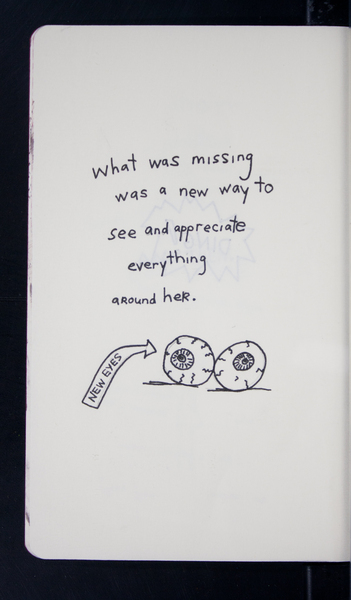 what was missing
was a new way to
see and appreciate
everything
around her.
NEW EYES